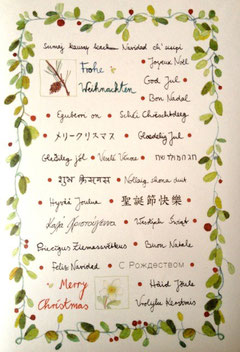 Sumaj kausay kachun Navidad ch' sisipi
Joyeux Noël
Frohe Weihnachten
God Jul
Bon Nadal
Egubern on • Schöni
メリークリスマス • Glædelig Jul
Gleðileg jól • Veselé Vánoce
शुभ क्रिसमस • Nollaig shona duit
Hyvää Joulua • 聖誕節快樂
Καλά Χριστούγεννα • Wesołych Świąt
Priecīgus Ziemassvētkus • Buon Natale
Feliz Navidad • С Рождеством
Merry Christmas
Häid Jõule
Vrolijke Kerstmis